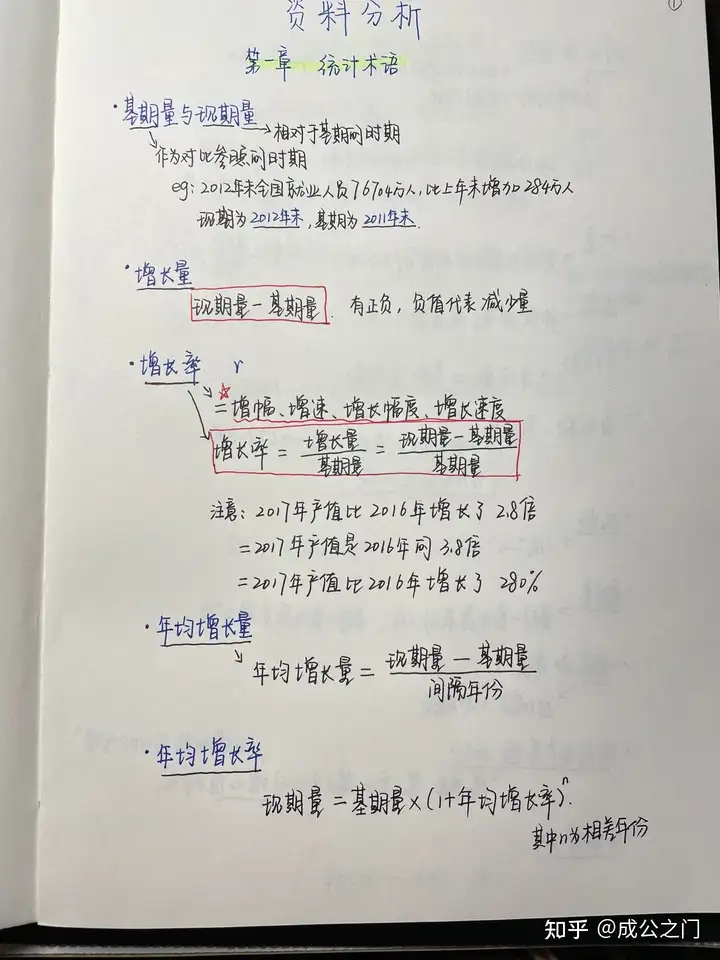 ①
资料分析
第一章 统计术语
·基期量与现期量→相对于基期的时期
作为对比参照的时期
eg:2012年末全国就业人员76704万人,比上年末增加284万人
现期为2012年末,基期为2011年末.
·增长量
现期量-基期量. 有正负,负值代表减少量
·增长率 r
☆
=增幅、增速、增长幅度、增长速度
增长率=增长量/基期量=现期量-基期量/基期量
注意:2017年产值比2016年增长了2.8倍
=2017年产值是2016年的3.8倍
=2017年产值比2016年增长了280%
·年均增长量
年均增长量=现期量-基期量/间隔年份
·年均增长率
现期量=基期量×(1+年均增长率)ⁿ.
其中n为相差年份
知乎 @成公之门